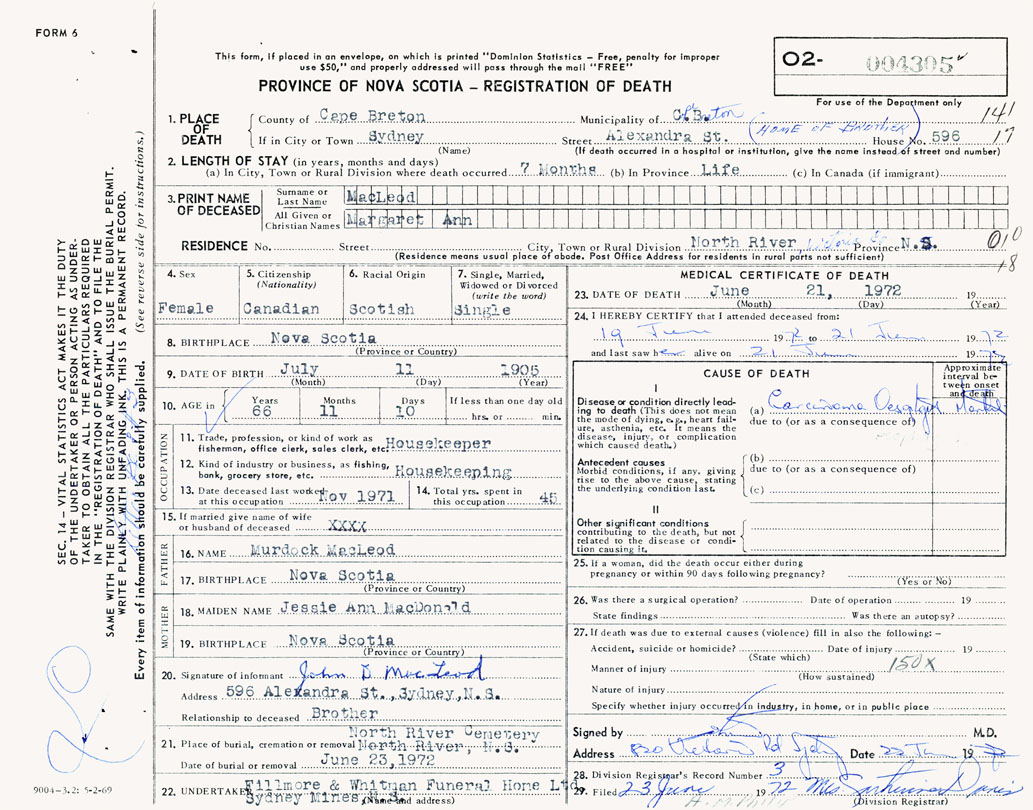 FORM 6
This form, if placed in an envelope, on which is printed "Dominion Statistics – Free, penalty for improper
use $50," and properly addressed will pass through the mail "FREE"
PROVINCE OF NOVA SCOTIA – REGISTRATION OF DEATH
O2- 004305
For use of the Department only
141
17
1. PLACE OF DEATH
County of Cape Breton Municipality of C. Breton
If in City or Town Sydney Street Alexandra St. (HOME OF BROTHER) House No. 596
(Name) (If death occurred in a hospital or institution, give the name instead of street and number)
2. LENGTH OF STAY (in years, months and days)
(a) In City, Town or Rural Division where death occurred 7 Months (b) In Province Life (c) In Canada (if immigrant)
3. PRINT NAME OF DECEASED
Surname or Last Name MacLeod
All Given or Christian Names Margaret Ann
RESIDENCE No. Street City, Town or Rural Division North River, Province N.S. 010
(Residence means usual place of abode. Post Office Address for residents in rural parts not sufficient) 18
4. Sex Female
5. Citizenship (Nationality) Canadian
6. Racial Origin Scotish
7. Single, Married, Widowed or Divorced (write the word) Single
8. BIRTHPLACE Nova Scotia
(Province or Country)
9. DATE OF BIRTH July 11 1905
(Month) (Day) (Year)
10. AGE in Years 66 Months 11 Days 10 If less than one day old hrs. or min.
OCCUPATION
11. Trade, profession, or kind of work as
fisherman, office clerk, sales clerk, etc. Housekeeper
12. Kind of industry or business, as fishing,
bank, grocery store, etc. Housekeeping
13. Date deceased last worked
at this occupation Nov 1971
14. Total yrs. spent in
this occupation 45
15. If married give name of wife
or husband of deceased XXXX
FATHER
16. NAME Murdock MacLeod
17. BIRTHPLACE Nova Scotia
(Province or Country)
MOTHER
18. MAIDEN NAME Jessie Ann MacDonald
19. BIRTHPLACE Nova Scotia
(Province or Country)
20. Signature of informant John D MacLeod
Address 596 Alexandra St.,Sydney,N.S.
Relationship to deceased Brother
North River Cemetery
21. Place of burial, cremation or removal North River, N.S.
Date of burial or removal June 23,1972
22. UNDERTAKER Fillmore & Whitman Funeral Home Ltd.
Sydney Mines, N.S. (Name and address)
MEDICAL CERTIFICATE OF DEATH
23. DATE OF DEATH June 21, 1972 19
(Month) (Day) (Year)
24. I HEREBY CERTIFY that I attended deceased from:
19 June 1972 to 21 June 1972
and last saw her alive on 21 June 1972
CAUSE OF DEATH
Approximate interval between onset and death
I
Disease or condition directly leading to death (This does not mean the mode of dying, e.g., heart failure, asthenia, etc. It means the disease, injury, or complication which caused death.)
(a) Carcinoma
due to (or as a consequence of)
Antecedent causes
Morbid conditions, if any, giving rise to the above cause, stating the underlying condition last.
(b)
due to (or as a consequence of)
(c)
II
Other significant conditions
contributing to the death, but not related to the disease or condition causing it.
25. If a woman, did the death occur either during
pregnancy or within 90 days following pregnancy?
(Yes or No)
26. Was there a surgical operation? Date of operation 19
State findings Was there an autopsy?
27. If death was due to external causes (violence) fill in also the following: –
Accident, suicide or homicide? Date of injury 19
(State which)
150X
Manner of injury
(How sustained)
Nature of injury
Specify whether injury occurred in industry, in home, or in public place
Signed by M.D.
Address Rd Date 22 June 19
28. Division Registrar's Record Number 3
29. Filed 23 June 1972 Mrs. Davis
(Division Registrar)
SEC. 14 – VITAL STATISTICS ACT MAKES IT THE DUTY
OF THE UNDERTAKER OR PERSON ACTING AS UNDERTAKER
TO OBTAIN ALL THE PARTICULARS REQUIRED
IN THE "REGISTRATION OF DEATH" AND TO FILE THE
SAME WITH THE DIVISION REGISTRAR WHO SHALL ISSUE THE BURIAL PERMIT.
WRITE PLAINLY WITH UNFADING INK. THIS IS A PERMANENT RECORD.
Every item of information should be carefully supplied. (See reverse side for instructions.)
9004-3.2: 5-2-69